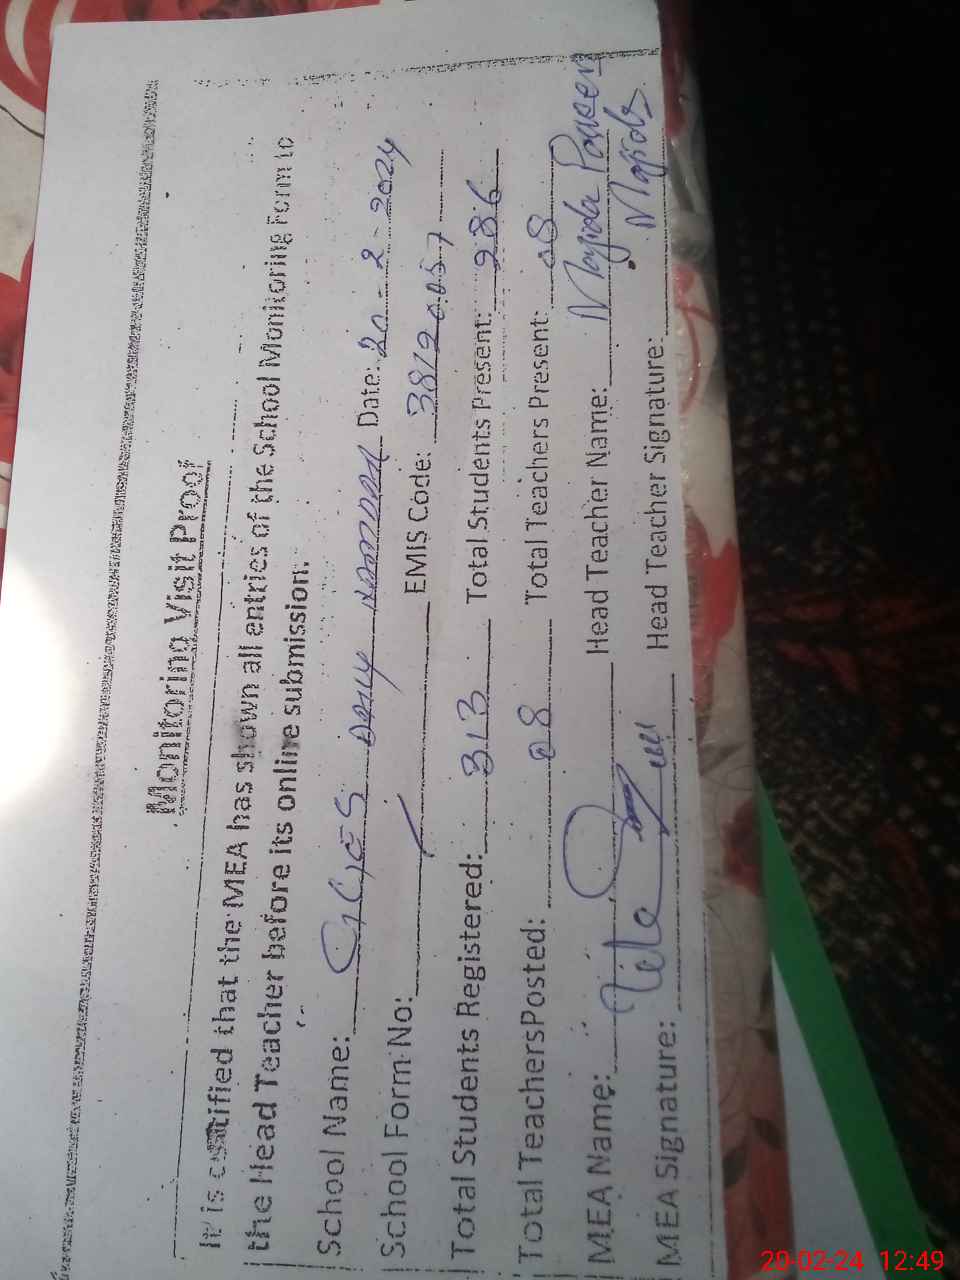 Monitoring Visit Proof
It is certified that the MEA has shown all entries of the School Monitoring Form to
the Head Teacher before its online submission.
School Name: GGES Date: 20-2-2024
School Form No: EMIS Code: 38120057
Total Students Registered: 313 Total Students Present: 286
Total Teachers Posted: 08 Total Teachers Present: 08
MEA Name: Head Teacher Name: Majida Parveen
MEA Signature: Head Teacher Signature: Majida
20-02-24 12:49